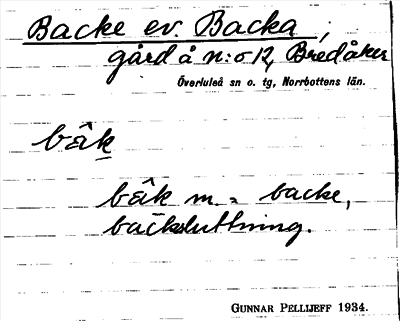 Backe ev. Backa,
gård å n:o 12, Bredåker
Överluleå sn o. tg, Norrbottens län.
bâk
bâk m. = backe,
backsluttning.
GUNNAR PELLIJEFF 1934.